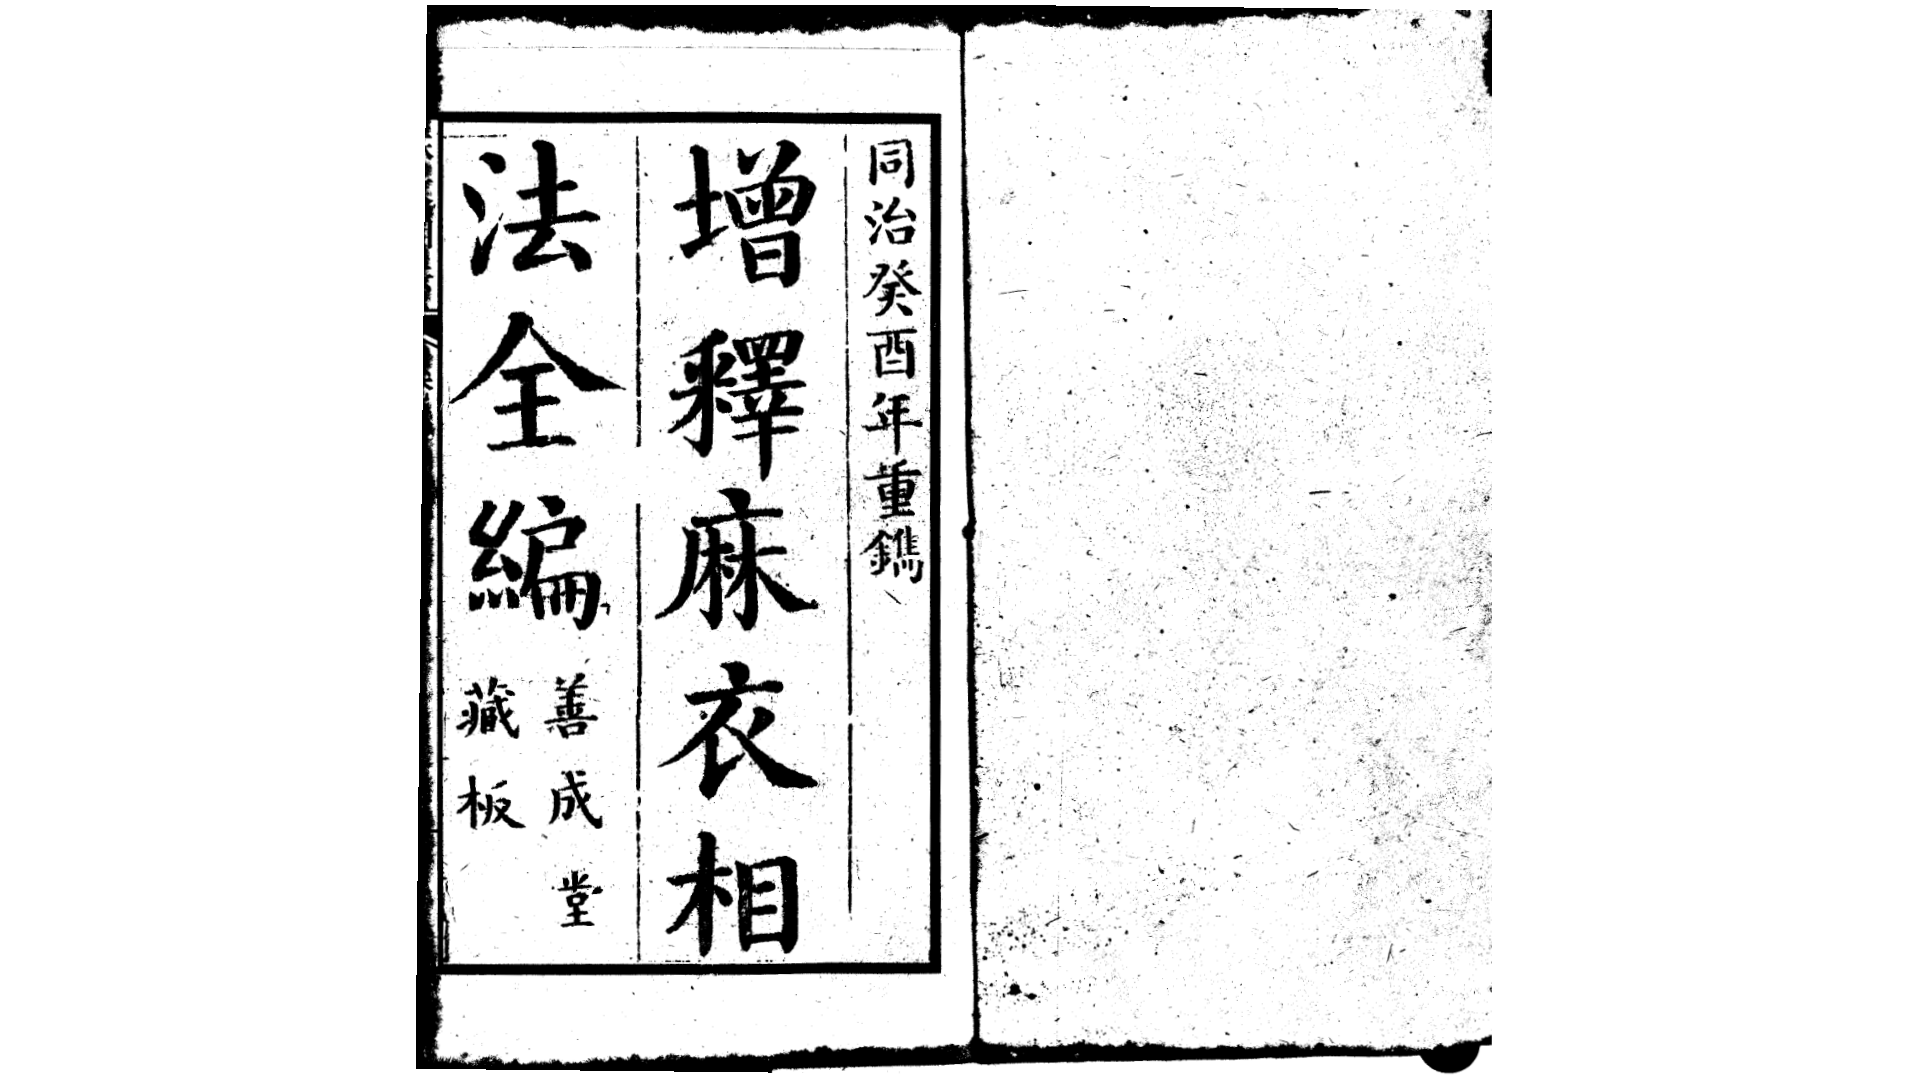 同治癸酉年重鐫
增釋麻衣相
法全編
善成堂
藏板